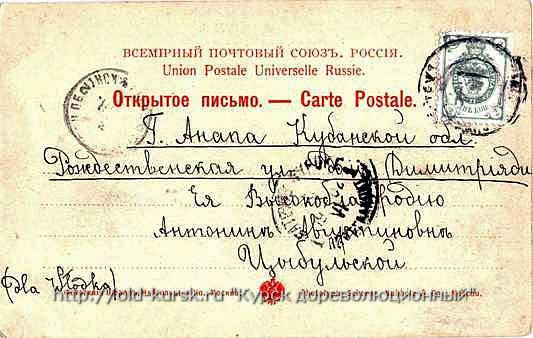 ВСЕМІРНЫЙ ПОЧТОВЫЙ СОЮЗЪ. РОССІЯ.
Union Postale Universelle Russie.
Открытое письмо. — Carte Postale.
Г. Анапа Кубанской обл.
Рождественская ул. Димитріяди
Ея Высокоблагородію
Антонинѣ Августиновнѣ
Цыбульской
(dla Włodka)
http://old-kursk.ru "Курск дореволюционный"